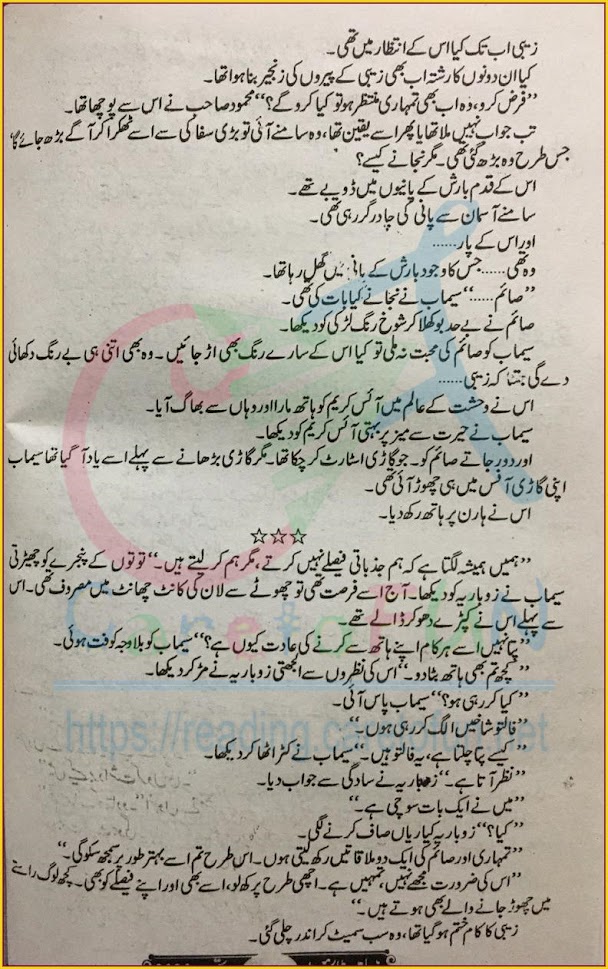 زیبی اب تک کیا اس کے انتظار میں تھی۔
کیا ان دونوں کا رشتہ اب بھی زیبی کے پیروں کی زنجیر بنا ہوا تھا۔
”فرض کرو، وہ اب بھی تمہاری منتظر ہو تو کیا کرو گے؟“ محمود صاحب نے اس سے پوچھا تھا۔
تب جواب نہیں ملا تھا یا پھر اسے یقین تھا، وہ سامنے آئی تو بڑی سفاکی سے اسے ٹھکرا کر آگے بڑھ جائے گا،
جس طرح وہ بڑھ گئی تھی۔ مگر نجانے کیسے؟
اس کے قدم بارش کے پانیوں میں ڈوبے تھے۔
سامنے آسمان سے پانی کی چادر گر رہی تھی۔
اور اس کے پار......
وہ تھی...... جس کا وجود بارش کے پانی میں گھل رہا تھا۔
”صائم......“ سیماب نے نجانے کیا بات کی تھی۔
صائم نے بے حد بوکھلا کر شوخ رنگ لڑکی کو دیکھا۔
سیماب کو صائم کی محبت نہ ملی تو کیا اس کے سارے رنگ بھی اڑ جائیں۔ وہ بھی اتنی ہی بے رنگ دکھائی
دے گی جتنا کہ زیبی......
اس نے وحشت کے عالم میں آئس کریم کو ہاتھ مارا اور وہاں سے بھاگ آیا۔
سیماب نے حیرت سے میز پر بہتی آئس کریم کو دیکھا۔
اور دور جاتے صائم کو۔ جو گاڑی اسٹارٹ کر چکا تھا۔ مگر گاڑی بڑھانے سے پہلے اسے یاد آ گیا تھا سیماب
اپنی گاڑی آفس میں ہی چھوڑ آئی تھی۔
اس نے ہارن پر ہاتھ رکھ دیا۔
☆☆☆
”ہمیں ہمیشہ لگتا ہے کہ ہم جذباتی فیصلے نہیں کرتے، مگر ہم کر لیتے ہیں۔“ توتوں کے پنجرے کو چھیڑتی
سیماب نے زوباریہ کو دیکھا۔ آج اسے فرصت تھی تو چھوٹے سے لان کی کانٹ چھانٹ میں مصروف تھی۔ اس
سے پہلے اس نے کپڑے دھو کر ڈالے تھے۔
”پتا نہیں اسے ہر کام اپنے ہاتھ سے کرنے کی عادت کیوں ہے؟“ سیماب کو بلاوجہ کوفت ہوئی۔
”کچھ تم بھی ہاتھ بٹا دو۔“ اس کی نظروں سے الجھتی زوباریہ نے مڑ کر دیکھا۔
”کیا کر رہی ہو؟“ سیماب پاس آئی۔
”فالتو شاخیں الگ کر رہی ہوں۔“
”کیسے پتا چلتا ہے، یہ فالتو ہیں۔“ سیماب نے کٹر اٹھا کر دیکھا۔
”نظر آتا ہے۔“ زوباریہ نے سادگی سے جواب دیا۔
”میں نے ایک بات سوچی ہے۔“
”کیا؟“ زوباریہ کیاریاں صاف کرنے لگی۔
”تمہاری اور صائم کی ایک دو ملاقاتیں رکھ لیتی ہوں۔ اس طرح تم اسے بہتر طور پر سمجھ سکو گی۔“
”اس کی ضرورت مجھے نہیں، تمہیں ہے۔ اچھی طرح پرکھ لو، اسے بھی اور اپنے فیصلے کو بھی۔ کچھ لوگ راستے
میں چھوڑ جانے والے بھی ہوتے ہیں۔“
زیبی کا کام ختم ہو گیا تھا، وہ سب سمیٹ کر اندر چلی گئی۔